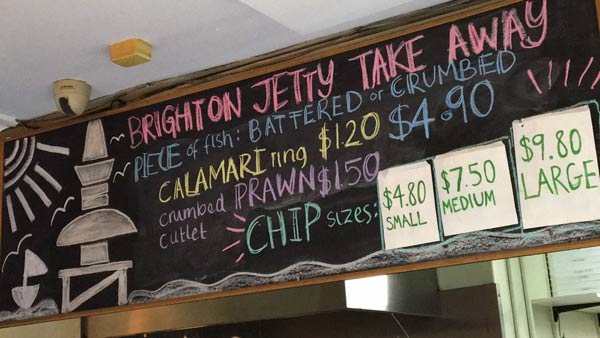 BRIGHTON JETTY TAKE AWAY
PIECE of fish: BATTERED or CRUMBED $4.90
CALAMARI ring $1.20
crumbed PRAWN $1.50
cutlet
CHIP sizes:
$4.80
SMALL
$7.50
MEDIUM
$9.80
LARGE